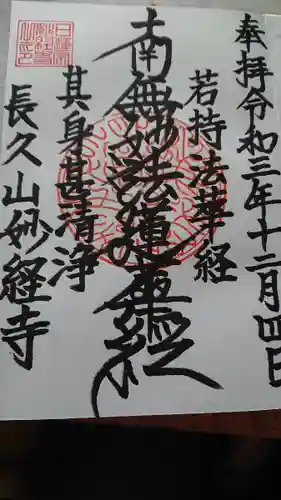 奉拝令和三年十二月四日
若持法華経
南無妙法蓮華経
其身甚清浄
長久山妙経寺